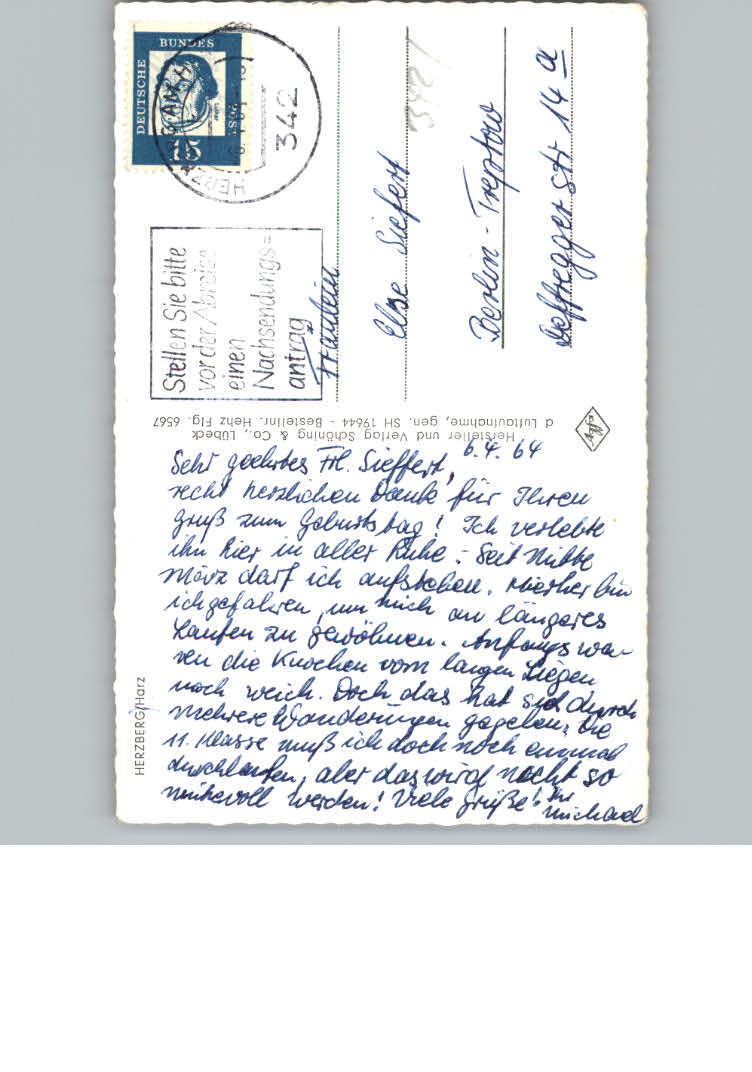 DEUTSCHE
BUNDES
POST
15
HERZBERG
342
Stellen Sie bitte
vor der Abreise
einen
Nachsendungs=
antrag
342
Fräulein
Else Siefert
Berlin-Treptow
Defregger str 14 a
Hersteller und Verlag Schöning & Co., Lübeck
d Luftaufnahme, gen. SH 19644 - Bestellnr. Hehz Flg. 6567
HERZBERG/Harz
6.4.64
Sehr geehrtes Frl. Sieffert,
recht herzlichen Dank für Ihren
Gruß zum Geburtstag! Ich verlebte
ihn hier in aller Ruhe. - Seit Mitte
März darf ich aufstehen. Hierher bin
ich gefahren, um mich an längeres
Laufen zu gewöhnen. Anfangs wa-
ren die Knochen vom langen Liegen
noch weich. Doch das hat sich durch
mehrere Wanderungen gegeben. Die
11. Klasse muß ich doch noch einmal
durchlaufen, aber das wird nicht so
mühevoll werden! Viele Grüße! Ihr
Michael